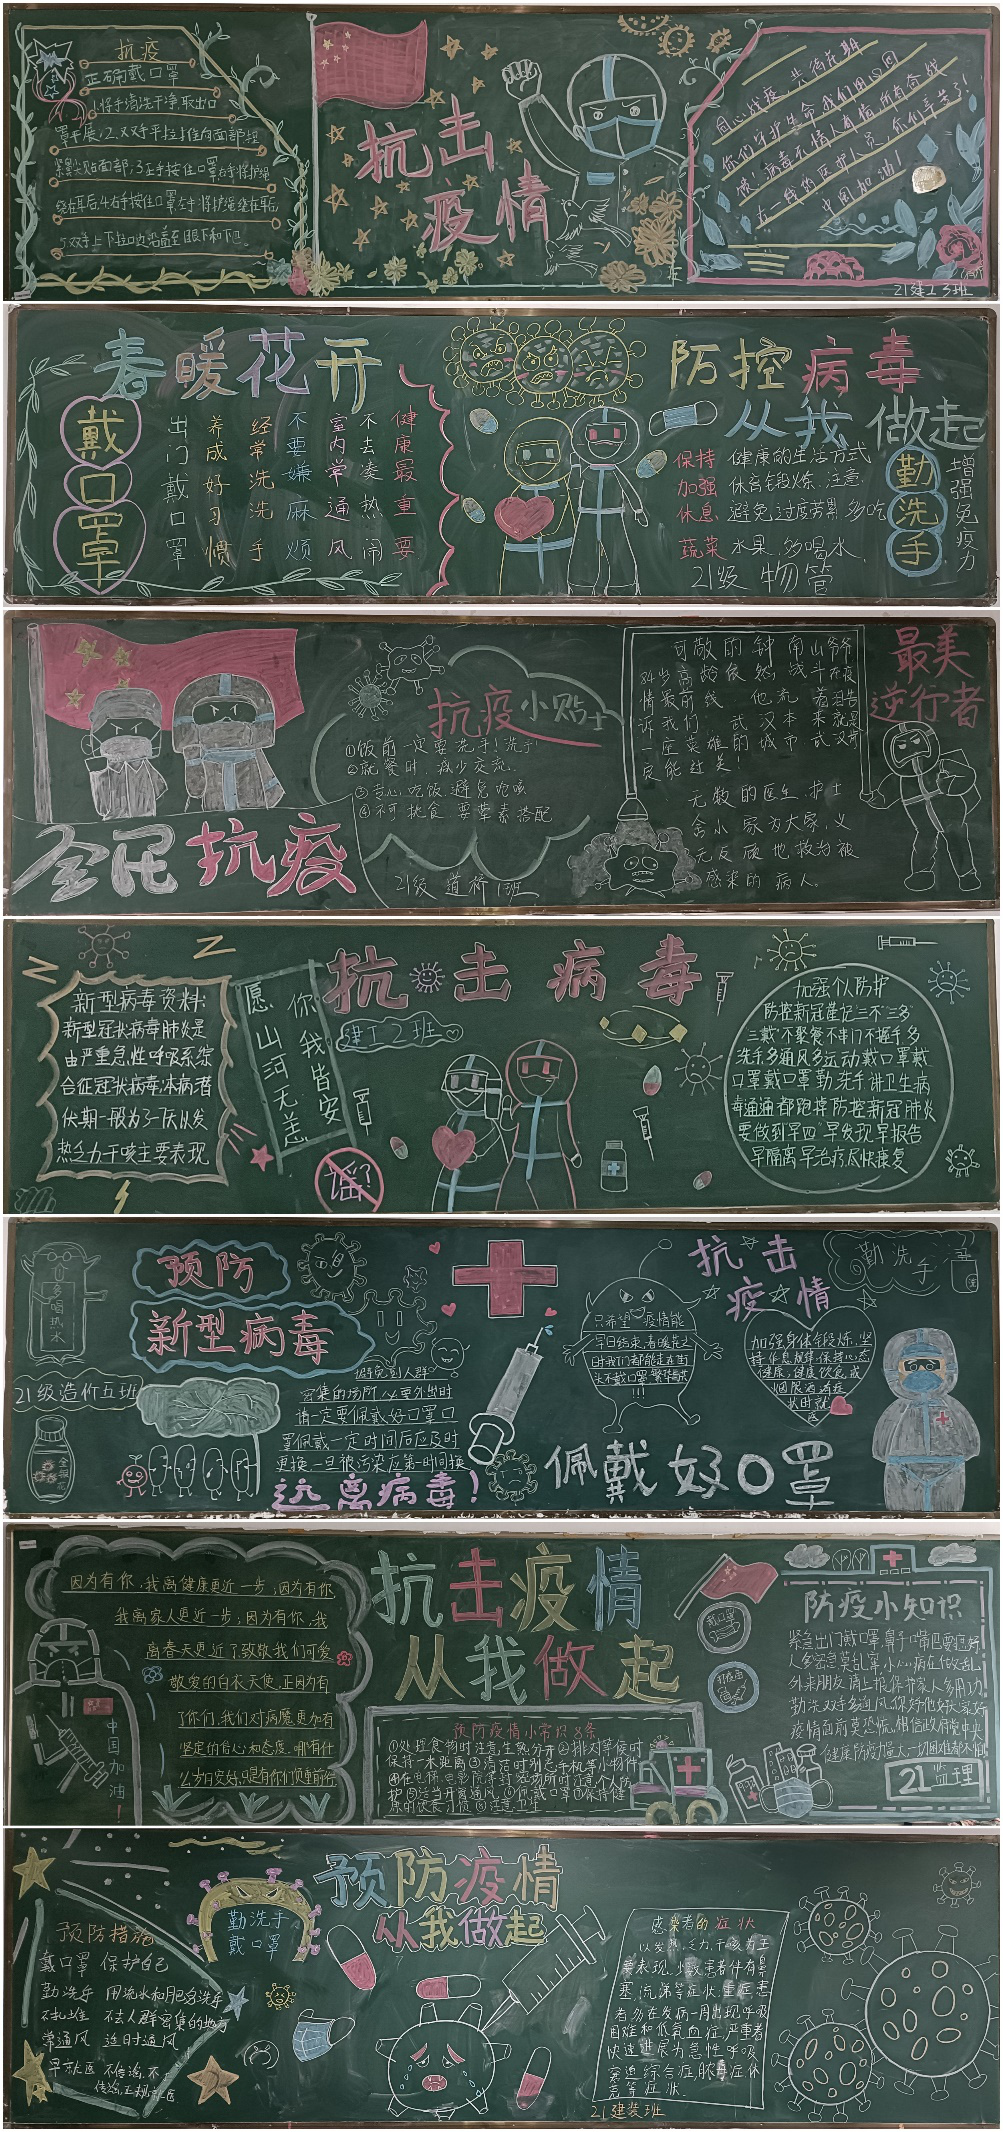 抗疫
正确戴口罩
1.将手清洗干净取出口
罩平展;2.双手平拉推向面部,捏
紧鼻头贴面部;3.左手按住口罩右手将护绳
绕在耳后4.右手按住口罩左手将护绳绕在耳后
5.双手上下拉口边沿盖至眼下和下巴。
抗击
疫情
同心战疫,共待花期
你们守护生命我们用心回
馈,病毒无情人有情,所有奋战
在一线的医护人员,你们辛苦了!
中国加油!
21建工3班
春暖花开
戴口罩
出门戴口罩
养成好习惯
经常洗洗手
不要嫌麻烦
室内常通风
不去凑热闹
健康最重要
防控病毒
从我做起
保持 健康的生活方式
加强 体育锻炼.注意
休息 避免过度劳累 多吃
蔬菜 水果,多喝水
21级 物管
勤洗手
增强免疫力
全民抗疫
抗疫小贴士
①饭前一定要洗手!洗手!
②就餐时,减少交流.
③专心吃饭避免呛咳
④不可挑食 要荤素搭配
21级 道桥1班
可敬的钟南山爷爷
84岁高龄依然战斗在疫
情最前线 他流着泪告
诉我们 武汉本来就是
一座英雄的城市 武汉肯
定能过关!
无数的医生,护士
舍小家为大家,义
无反顾地救治被
感染的病人。
最美
逆行者
新型病毒资料:
新型冠状病毒肺炎是
由严重急性呼吸系综
合征冠状病毒,本病潜
伏期一般为3-7天以发
热乏力干咳主要表现
愿山河无恙
你我皆安
抗击病毒
建工2班
谣?
加强个人防护
防控新冠谨记“三不”“三多”
三戴”不聚餐不串门不握手,多
洗手多通风多运动戴口罩戴
口罩戴口罩勤洗手讲卫生病
毒通通都跑掉防控新冠肺炎
要做到早四“早发现早报告
早隔离早治疗尽快康复
多喝热水
预防
新型病毒
21级造价五班
避免到人群
密集的场所人必要外出时
请一定要佩戴好口罩口
罩佩戴一定时间后应及时
更换,一旦被污染应第一时间换
远离病毒!
只希望 疫情能
早日结束,春暖花开
时我们都能走在街
头不戴口罩 繁华依
!!!
抗击
疫情
勤洗手
加强身体锻炼.坚
持作息规律.保持心态
健康,健康饮食,戒
烟限酒 有症
状时就
医
佩戴好口罩
因为有你,我离健康更近一步;因为有你,
我离家人更近一步;因为有你,我
离春天更近了.致敬我们可爱
敬爱的白衣天使.正因为有
了你们,我们对病魔更加有
坚定的信心和态度.哪有什
么岁月安好,只是有你们负重前行
中国加油!
抗击疫情
从我做起
预防疫情小常识8条
①处理食物时注意,生熟分开②排队等候时
保持一米距离③清洁时别忘手机等小物件
④在电梯、电影院等封闭场所时注意个人防
护⑤经常开窗通风⑥佩戴口罩⑦保持健
康的饮食习惯⑧注意卫生
防疫小知识
紧急出门戴口罩,鼻子嘴巴要遮好
人多密急莫乱窜,小心病在做乱
外来朋友请上报,保护家人多用功
勤洗双手多通风,你好他好大家好
疫情面前莫恐慌,相信政府党中央
健康防疫力量大一切困难都不怕
21监理
预防措施
戴口罩 保护自己
勤洗手 用流水和肥皂洗手
不扎堆 不去人群密集的地方
常通风 适时通风
早就医 不信谣,不
传谣,正规就医
勤洗手
戴口罩
预防疫情
从我做起
感染者的症状
以发热、乏力、干咳为主
要表现,少数患者伴有鼻
塞,流涕等症状.重症患
者多在发病一周出现呼吸
困难和低氧血症,严重者
快速进展为急性呼吸
窘迫综合症,脓毒症休
克等症状.
21建装班